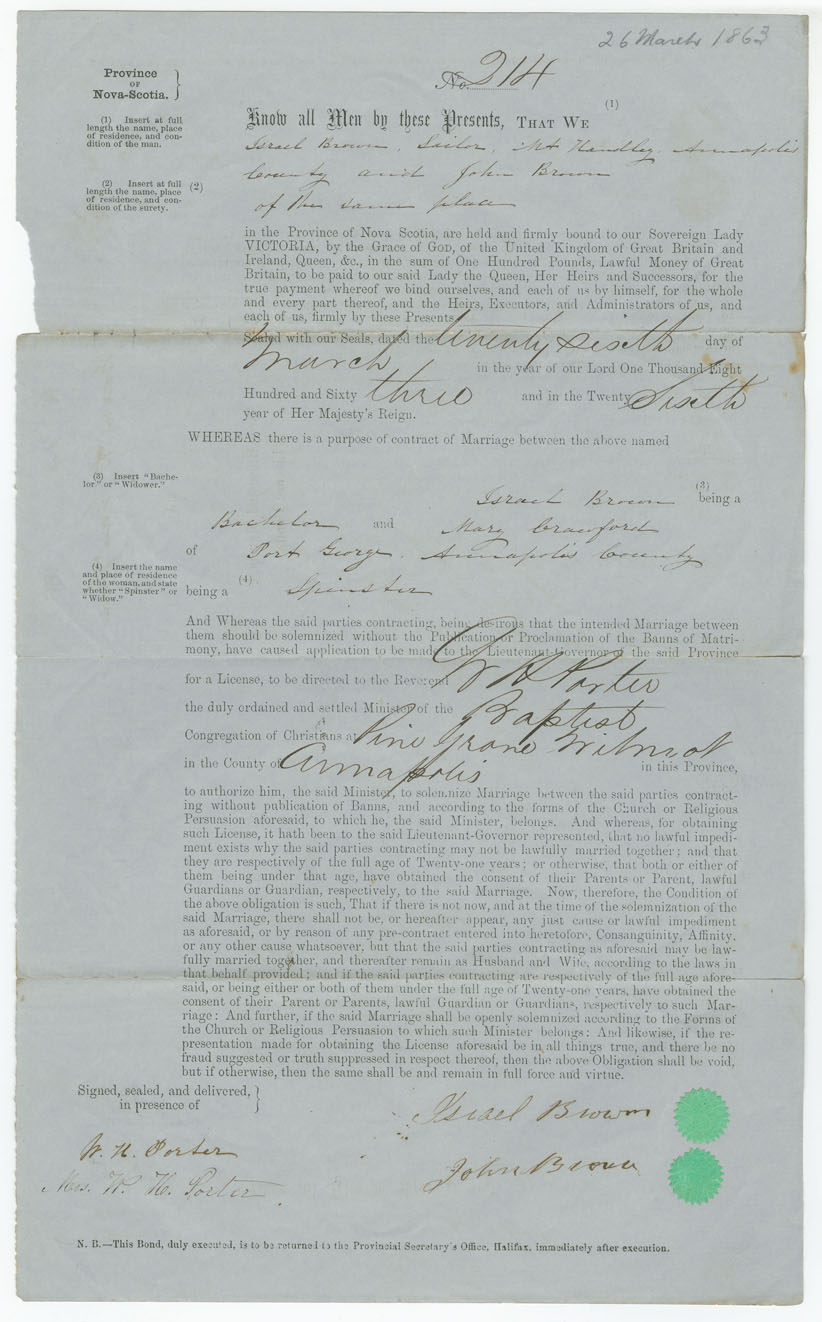 26 March 1863
Province
OF
Nova-Scotia.
No. 214
(1) Insert at full
length the name, place
of residence, and con-
dition of the man.
(1)
Know all Men by these Presents, THAT WE
Israel Brown, Sailor, Mt Handley, Annapolis
(2) Insert at full
length the name, place
of residence, and con-
dition of the surety.
(2)
County and John Brown
of the same place
in the Province of Nova Scotia, are held and firmly bound to our Sovereign Lady
VICTORIA, by the Grace of GOD, of the United Kingdom of Great Britain and
Ireland, Queen, &c., in the sum of One Hundred Pounds, Lawful Money of Great
Britain, to be paid to our said Lady the Queen, Her Heirs and Successors, for the
true payment whereof we bind ourselves, and each of us by himself, for the whole
and every part thereof, and the Heirs, Executors, and Administrators of us, and
each of us, firmly by these Presents.
Sealed with our Seals, dated the twenty sixth day of
March in the year of our Lord One Thousand Eight
Hundred and Sixty three and in the Twenty Sixth
year of Her Majesty's Reign.
WHEREAS there is a purpose of contract of Marriage between the above named
(3) Insert "Bache-
lor" or "Widower."
(3)
Israel Brown being a
Bachelor and Mary Crawford
of Port George, Annapolis County
(4) Insert the name
and place of residence
of the woman, and state
whether "Spinster" or
"Widow."
being a (4) Spinster
And Whereas the said parties contracting, being desirous that the intended Marriage between
them should be solemnized without the Publication or Proclamation of the Banns of Matri-
mony, have caused application to be made to the Lieutenant-Governor of the said Province
for a License, to be directed to the Reverend W H Porter
the duly ordained and settled Minister of the Baptist
Congregation of Christians at Pine Grove Wilmot
in the County of Annapolis in this Province,
to authorize him, the said Minister, to solemnize Marriage between the said parties contract-
ing without publication of Banns, and according to the forms of the Church or Religious
Persuasion aforesaid, to which he, the said Minister, belongs. And whereas, for obtaining
such License, it hath been to the said Lieutenant-Governor represented, that no lawful impedi-
ment exists why the said parties contracting may not be lawfully married together; and that
they are respectively of the full age of Twenty-one years; or otherwise, that both or either of
them being under that age, have obtained the consent of their Parents or Parent, lawful
Guardians or Guardian, respectively, to the said Marriage. Now, therefore, the Condition of
the above obligation is such, That if there is not now, and at the time of the solemnization of the
said Marriage, there shall not be, or hereafter appear, any just cause or lawful impediment
as aforesaid, or by reason of any pre-contract entered into heretofore, Consanguinity, Affinity,
or any other cause whatsoever, but that the said parties contracting as aforesaid may be law-
fully married together, and thereafter remain as Husband and Wife, according to the laws in
that behalf provided; and if the said parties contracting are respectively of the full age afore-
said, or being either or both of them under the full age of Twenty-one years, have obtained the
consent of their Parent or Parents, lawful Guardian or Guardians, respectively to such Mar-
riage: And further, if the said Marriage shall be openly solemnized according to the Forms of
the Church or Religious Persuasion to which such Minister belongs: And likewise, if the re-
presentation made for obtaining the License aforesaid be in all things true, and there be no
fraud suggested or truth suppressed in respect thereof, then the above Obligation shall be void,
but if otherwise, then the same shall be and remain in full force and virtue.
Signed, sealed, and delivered,
in presence of
Israel Brown
W. H. Porter
John Brown
Mrs. W. H. Porter
N. B.—This Bond, duly executed, is to be returned to the Provincial Secretary's Office, Halifax, immediately after execution.